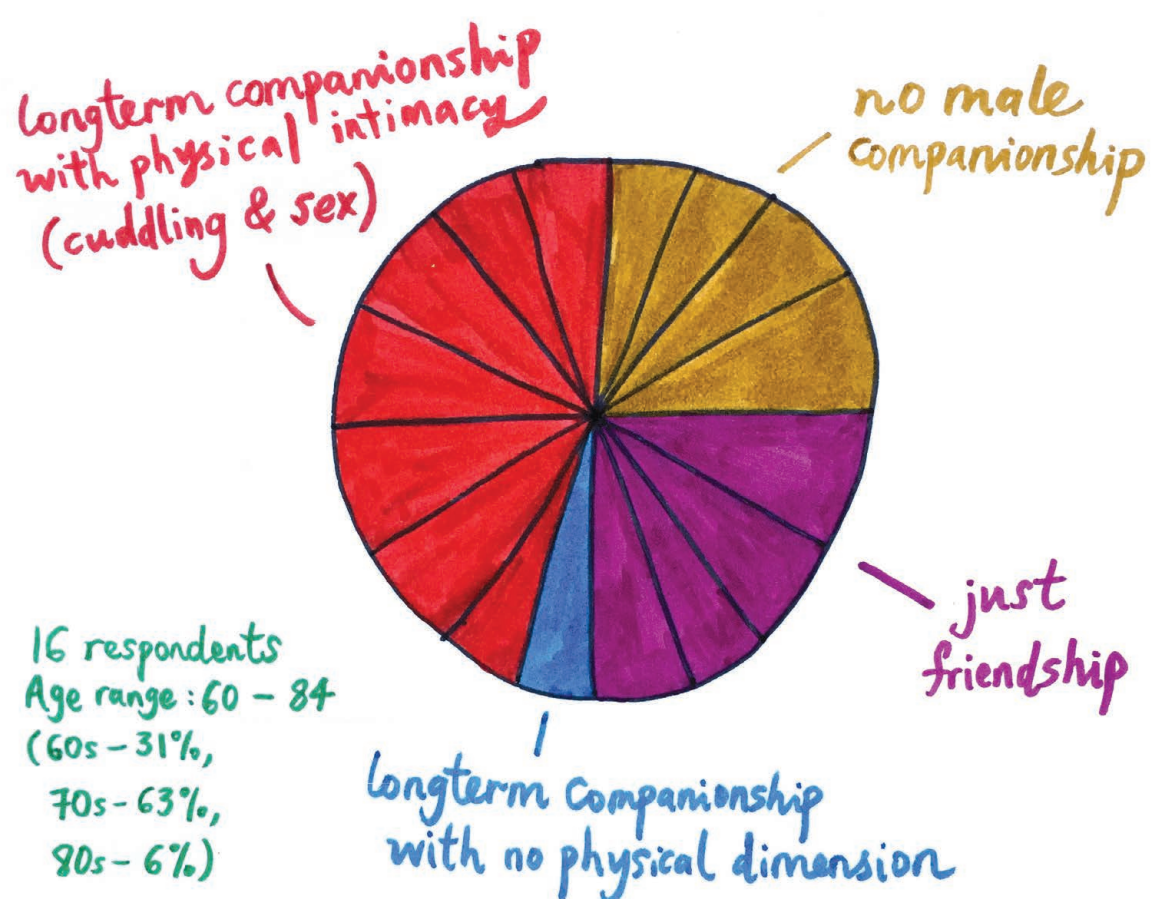 longterm companionship
with physical intimacy
(cuddling & sex)
no male
companionship
just
friendship
longterm companionship
with no physical dimension
16 respondents
Age range: 60 – 84
(60s – 31%,
70s – 63%,
80s – 6%)